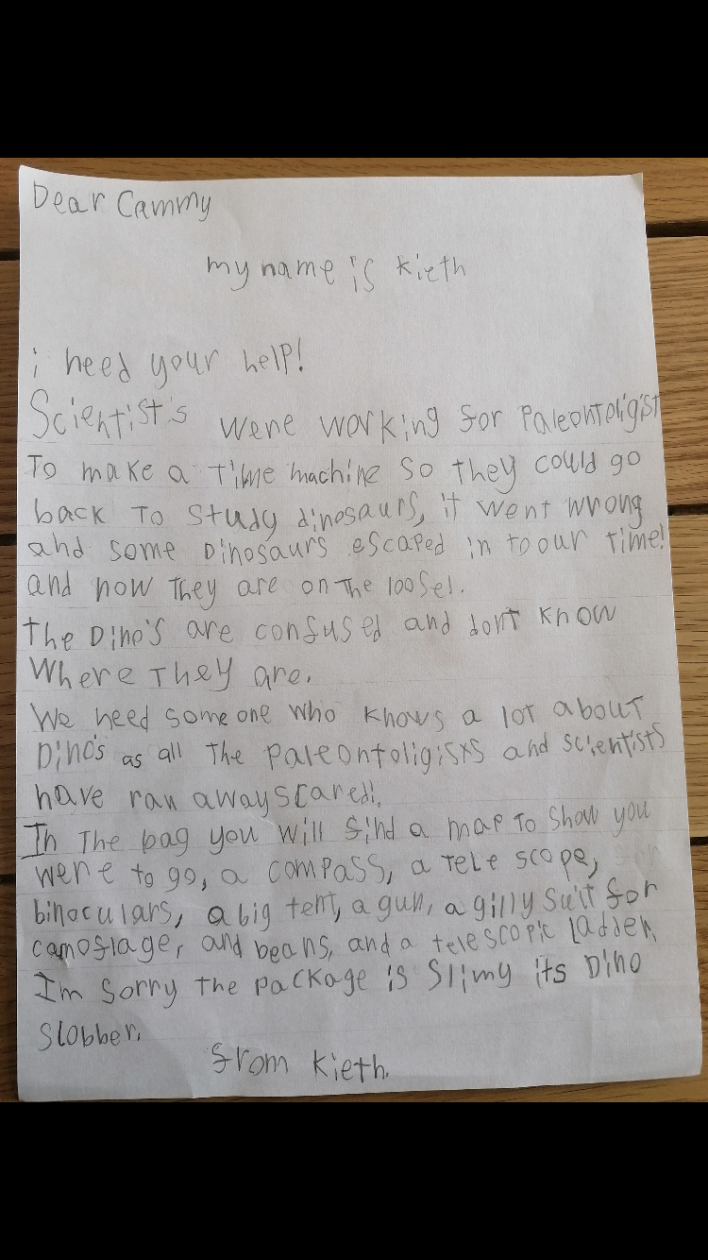 Dear Cammy
my name is Kieth
i need your help!
Scientist's were working for Paleontoligist
To make a Time machine so they could go
back To study dinosaurs, it went wrong
and some Dinosaurs escaped in to our time!
and now they are on The loose!.
the Dino's are confused and dont know
Where They are.
We need some one who knows a lot about
Dino's as all The paleontoligists and scientists
have ran away scared!.
In The bag you will find a map To show you
were to go, a compass, a tele scope,
binoculars, a big tent, a gun, a gilly suit for
camoflager, and beans, and a telescopic ladder.
Im sorry the package is slimy its Dino
slobber.
from Kieth.